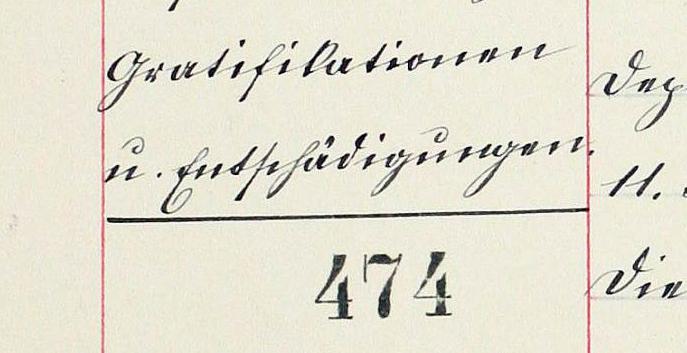 Gratifikationen
u. Entschädigungen.
474
Dep
11.
Die